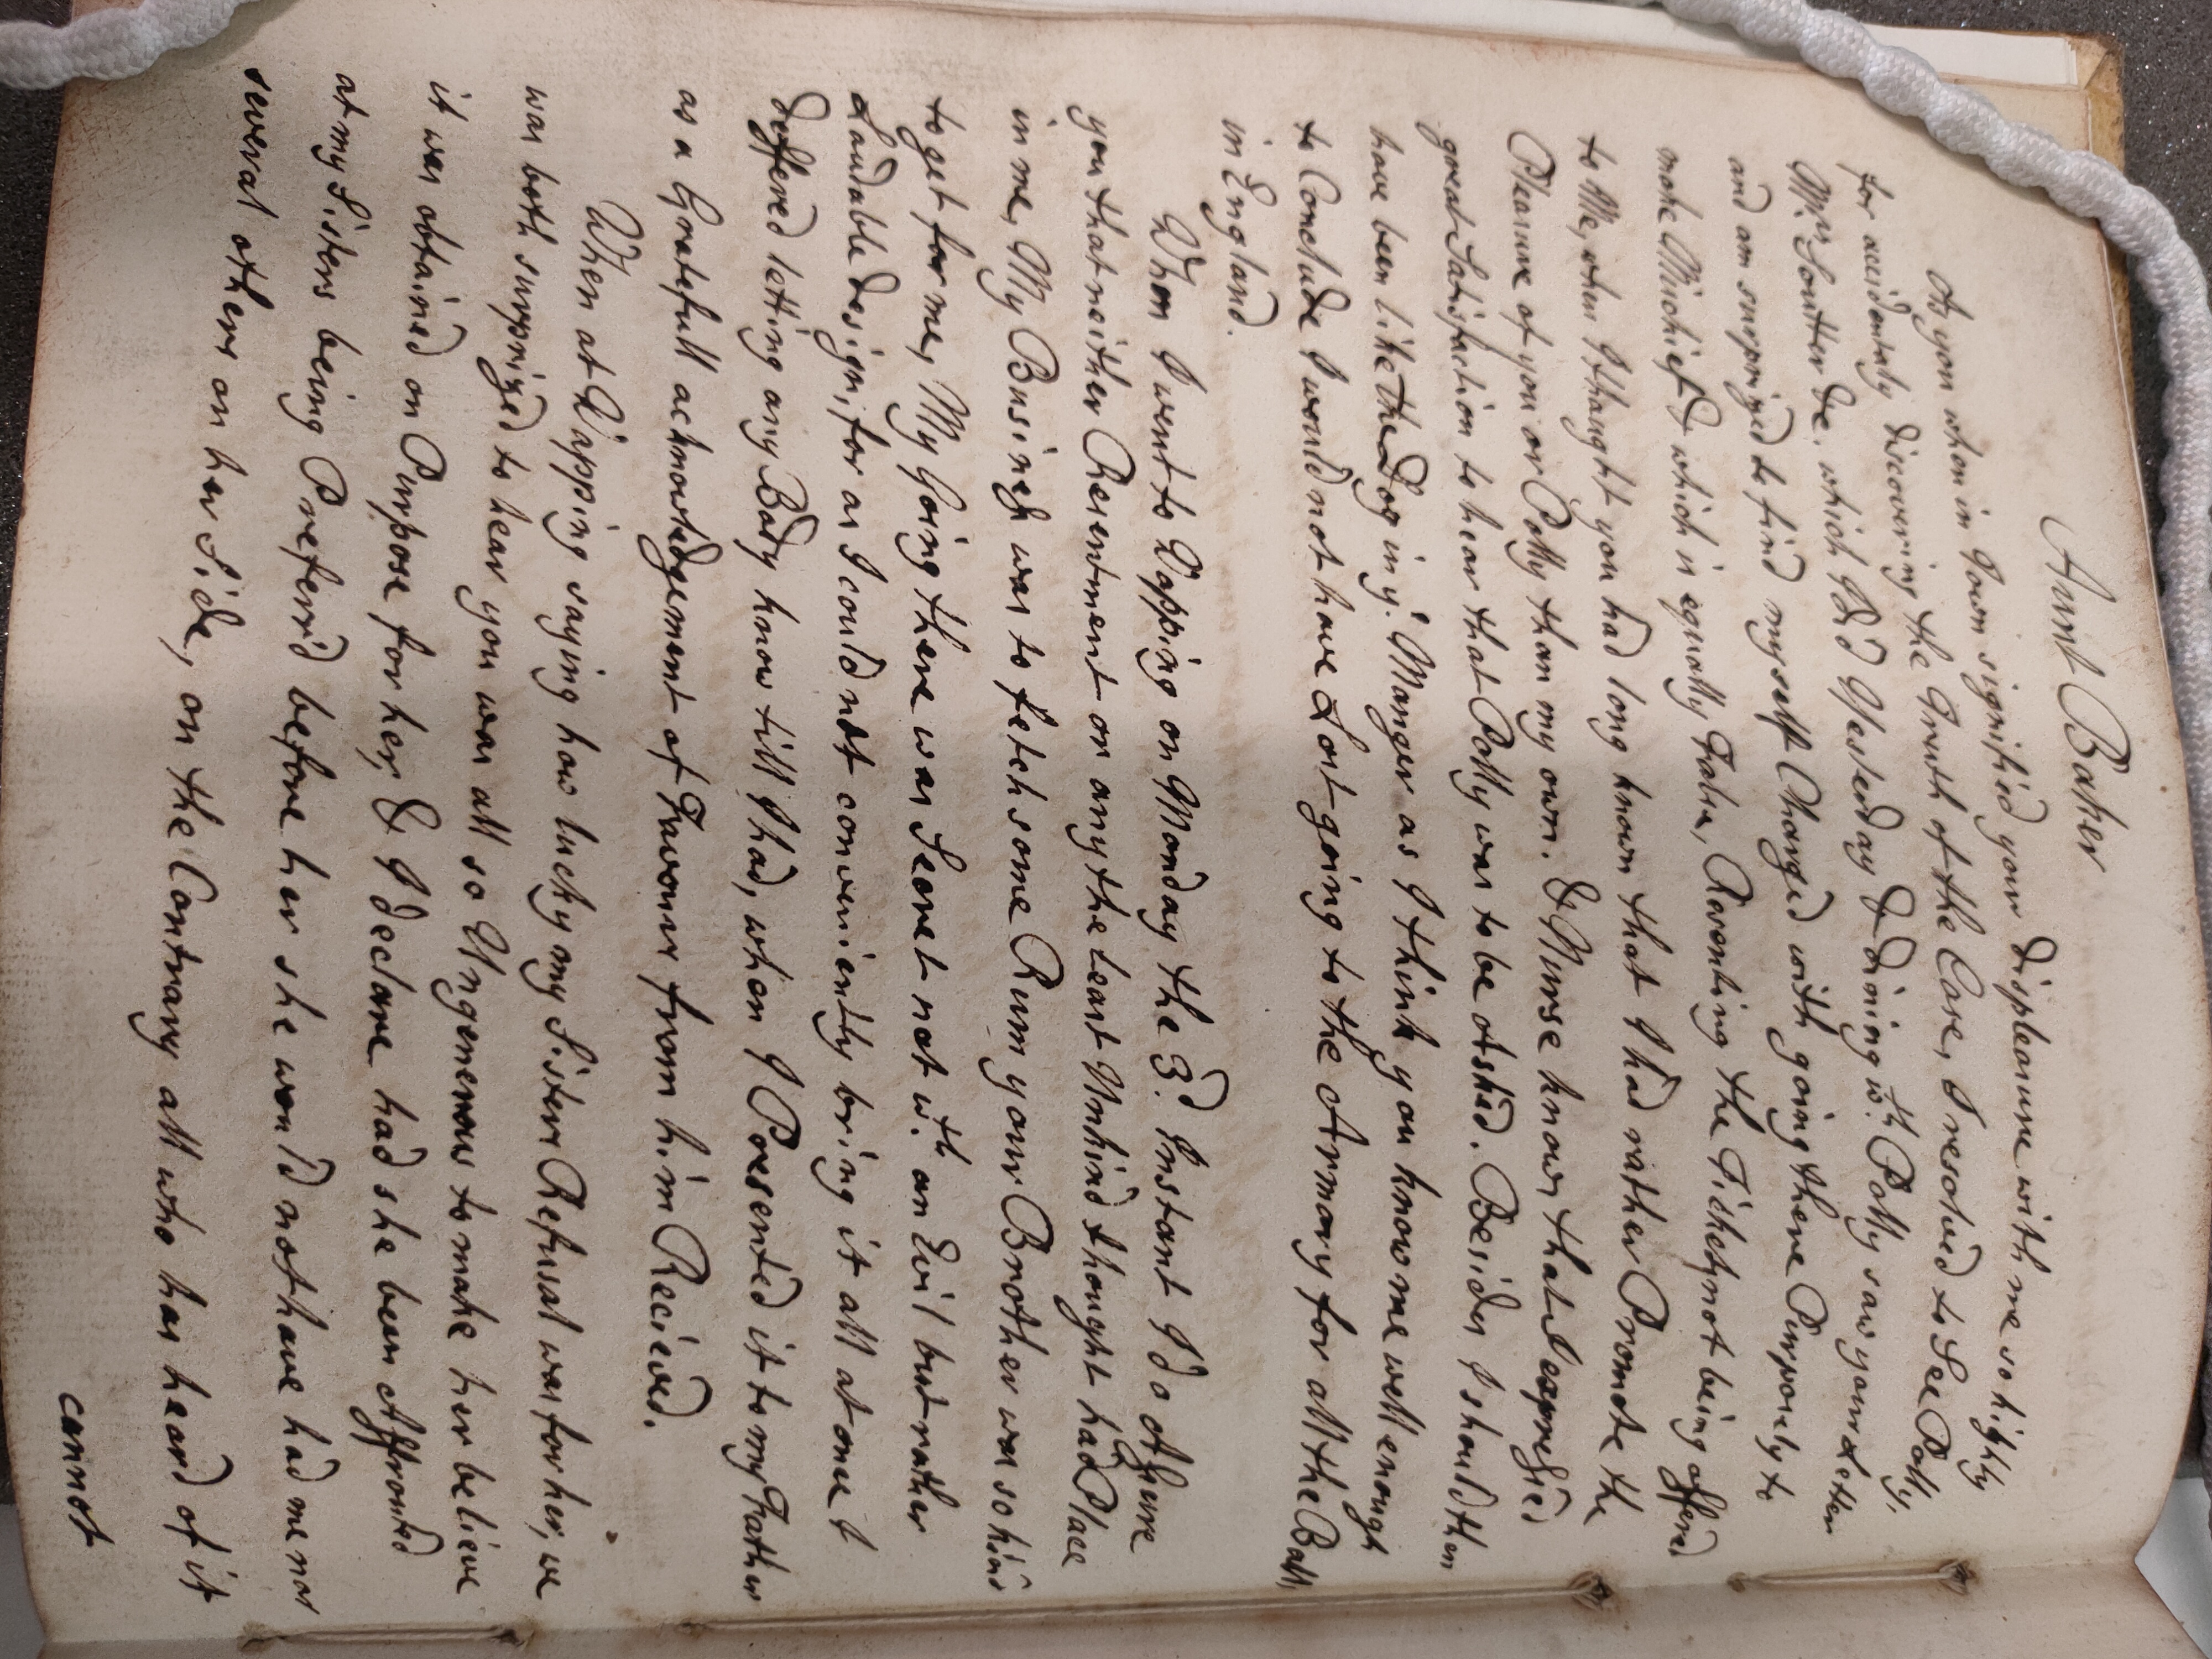 Aunt Baker
As you when in Town signified your displeasure with me so highly
for accidentaly discovering the Truth of the Case, I resolved to See Polly,
Mrs Soutter &c. which I did Yesterday & dining wth. Polly saw your Letter
and am surprized to find myself Charged with going there Purposely to
make Mischief & which is equally False, Resenting the Ticket not being offered
to Me, when I thought you had long known that I had rather Promote the
Pleasure of you or Polly than my own. & Nurse knows that I expressed
great Satisfaction to hear that Polly was to be Asked. Besides I should then
have been like the Dog in ye. Manger as I think you know me well enough
to Conclude I would not have Lost going to the Armary for all the Balls
in England.
When I went to Wapping on Monday the 3d. Instant I do Assure
you that neither Resentment or any the least Unkind thought had Place
in me, My Business was to fetch some Rum your Brother was so kind
to get for me, My Going there was Secret not wth. an Evil but rather
Laudable design, for as I could not conveniently bring it all at once I
deffered letting any Body know till I had, when I Presented it to my Father
as a Gratefull acknowledgement of Favours from him Recieved.
When at Wapping saying how lucky my Sisters Refusal was for her, we
was both surprized to hear you was all so Ungenerous to make her believe
it was obtained on Purpose for her, & I declare had she been Affronted
at my Sisters being Preferr'd before her she would not have had me nor
several others on her Side, on the Contrary all who has heard of it
cannot